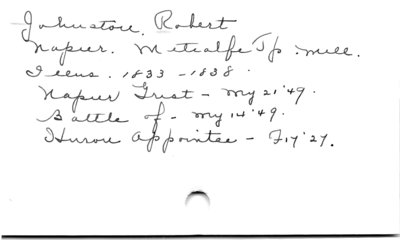 Johnstone, Robert
Napier. Metcalfe Tp. Mill.
Items. 1833 - 1838.
Napier Grist - My 21 '49.
Battle of - My 14 '49.
Huron appointee - F 17 '27.